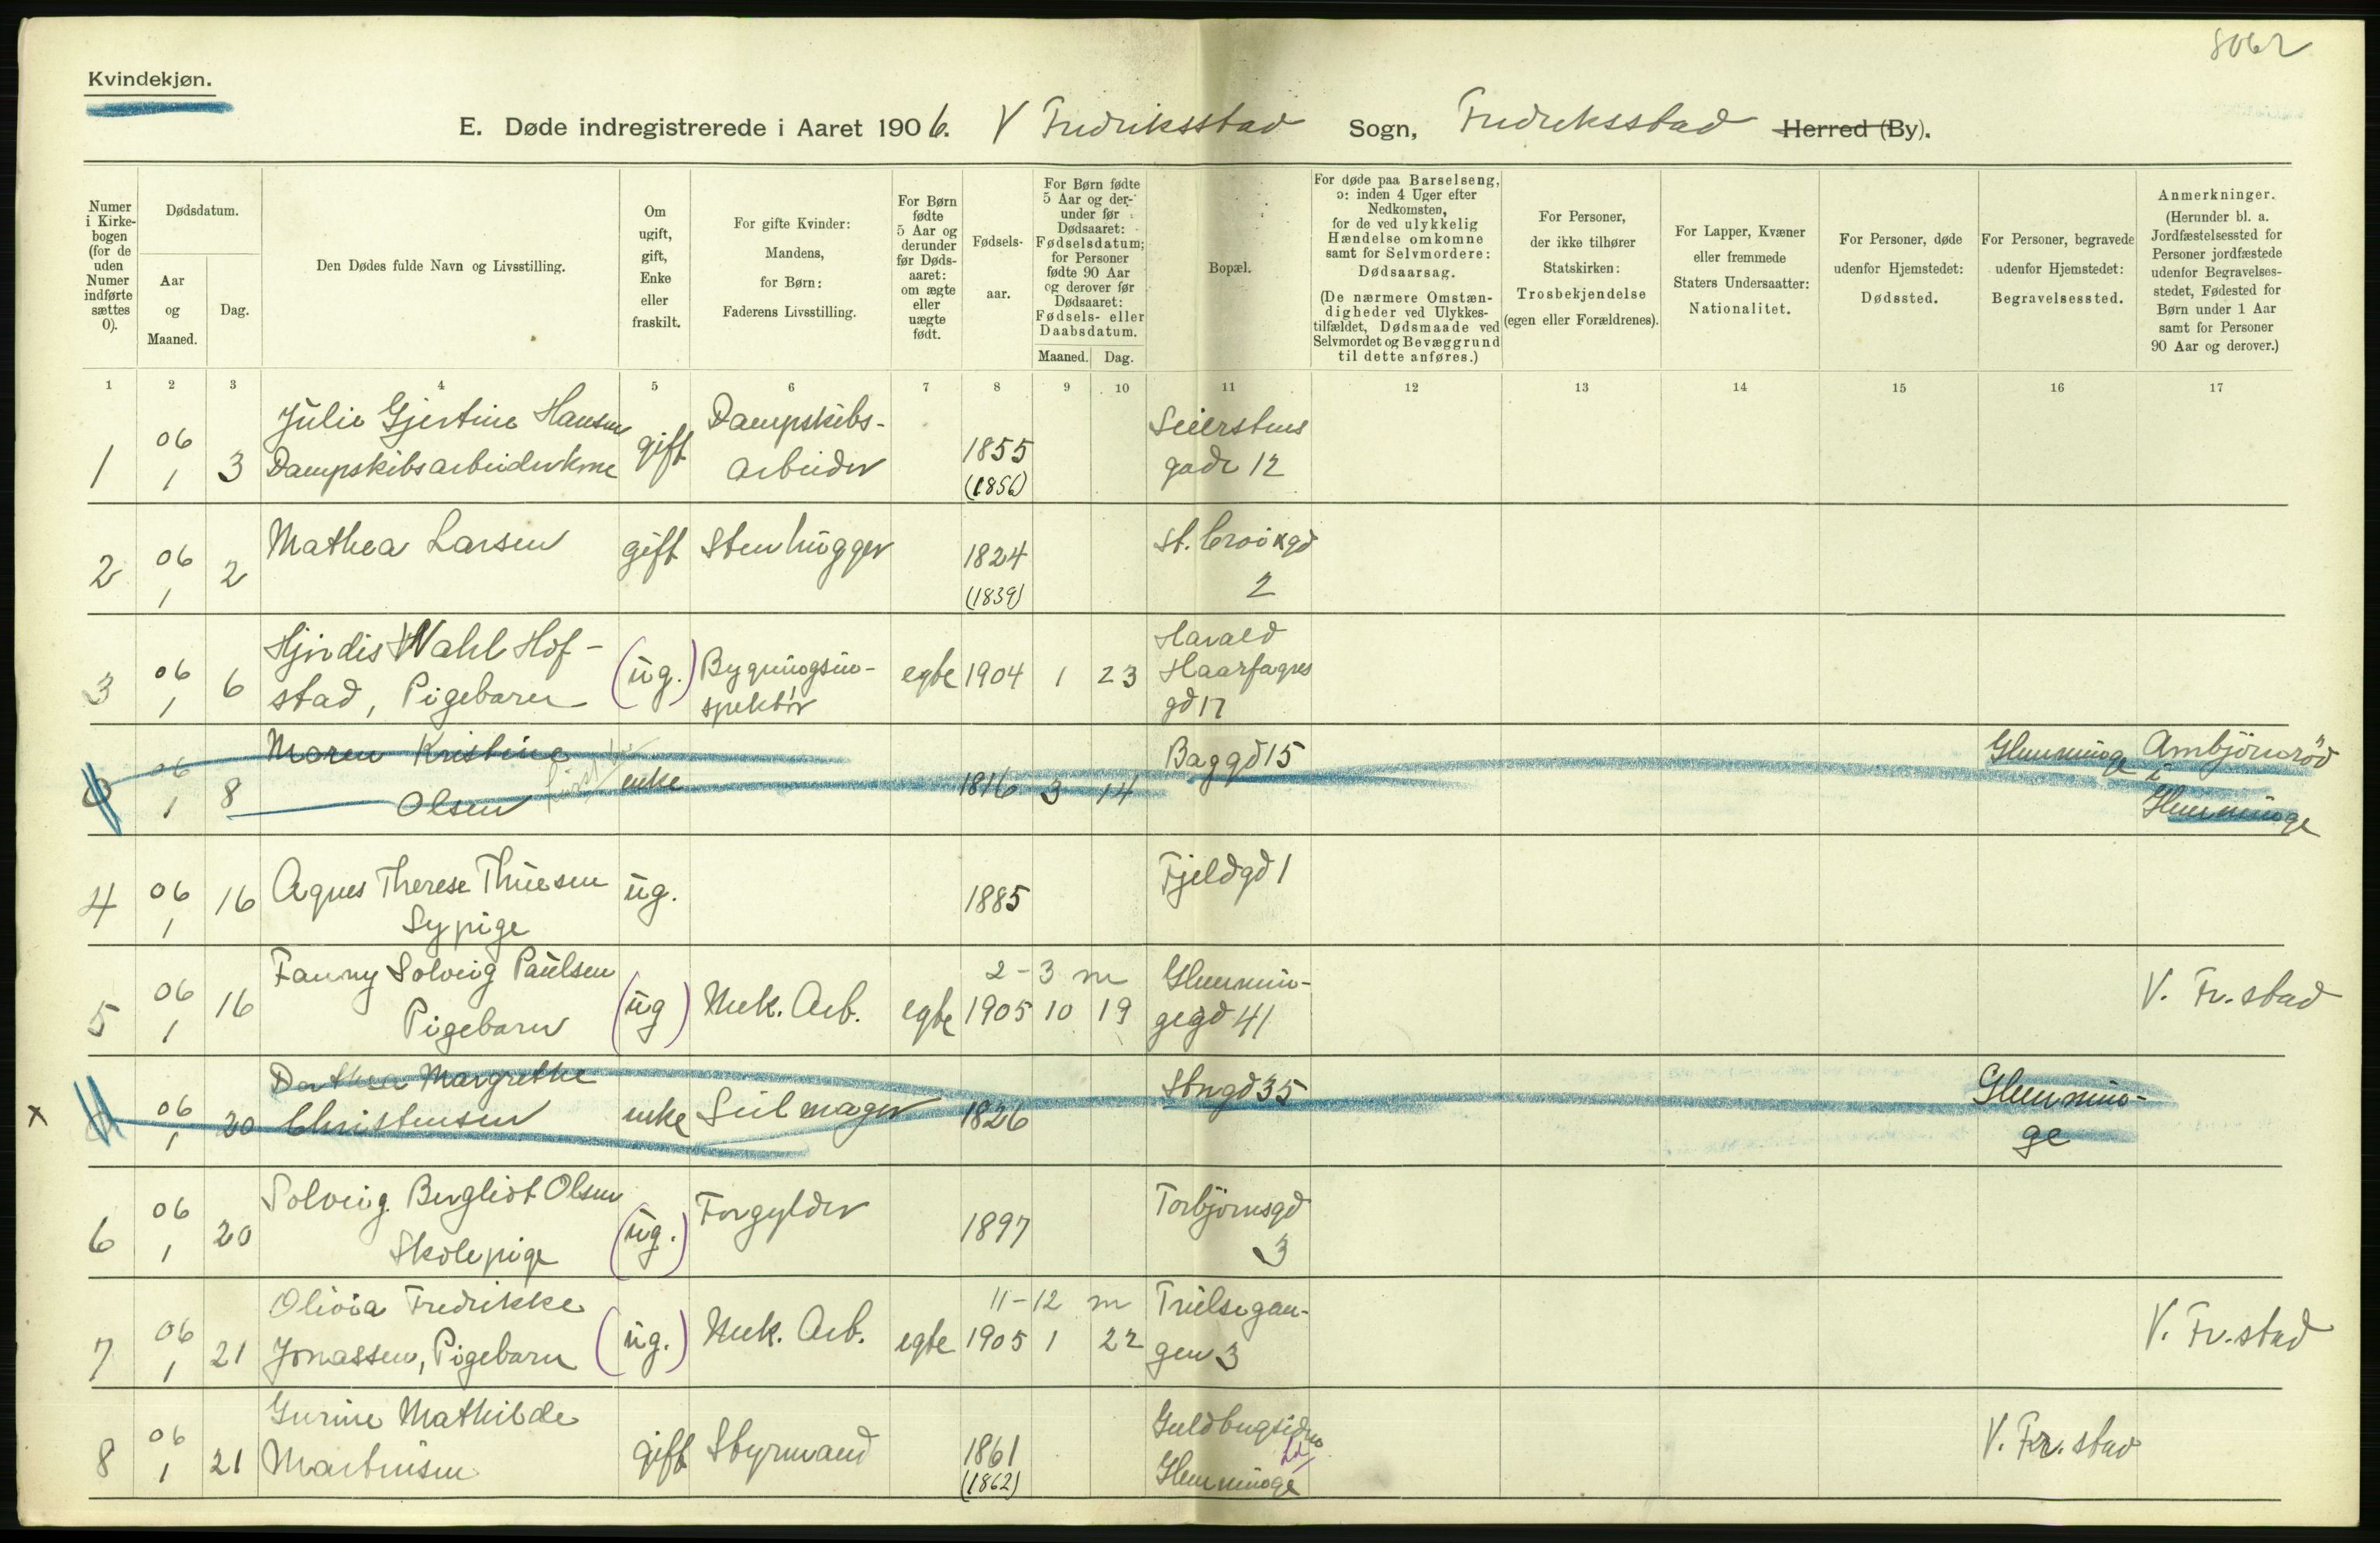 8062
Kvindekjøn.
E. Døde indregistrerede i Aaret 1906. V Fredriksstad Sogn, Fredriksstad Herred (By).
Numer i Kirkebogen (for de uden Numer indførte sættes 0).
Dødsdatum.
Aar og Maaned.
Dag.
Den Dødes fulde Navn og Livsstilling.
Om ugift, gift, Enke eller fraskilt.
For gifte Kvinder: Mandens, for Børn: Faderens Livsstilling.
For Børn fødte 5 Aar og derunder før Dødsaaret: om ægte eller uægte født.
Fødselsaar.
For Børn fødte 5 Aar og derunder før Dødsaaret: Fødselsdatum; for Personer fødte 90 Aar og derover før Dødsaaret: Fødsels- eller Daabsdatum.
Maaned. Dag.
Bopæl.
For døde paa Barselseng, ɔ: inden 4 Uger efter Nedkomsten, for de ved ulykkelig Hændelse omkomne samt for Selvmordere: Dødsaarsag.
(De nærmere Omstændigheder ved Ulykkestilfældet, Dødsmaade ved Selvmordet og Bevæggrund til dette anføres.)
For Personer, der ikke tilhører Statskirken: Trosbekjendelse (egen eller Forældrenes).
For Lapper, Kvæner eller fremmede Staters Undersaatter: Nationalitet.
For Personer, døde udenfor Hjemstedet: Dødssted.
For Personer, begravede udenfor Hjemstedet: Begravelsessted.
Anmerkninger. (Herunder bl. a. Jordfæstelsessted for Personer jordfæstede udenfor Begravelsesstedet, Fødested for Børn under 1 Aar samt for Personer 90 Aar og derover.)
1 2 3 4 5 6 7 8 9 10 11 12 13 14 15 16 17
1 06 1 3 Julie Gjertine Hansen Dampskibsarbeiderkone gift Dampskibs- arbeider 1855 (1856) Seierstens gade 12
2 06 1 2 Mathea Larsen gift Stenhugger 1824 (1839) St. Croixgd 2
3 06 1 6 Hjørdis Wahl Hof- stad, Pigebarn (ug.) Bygningsin- spektør egte 1904 1 23 Harald Haarfagres gd 17
0 06 1 8 Maren Kristine Olsen enke 1816 3 14 Baggd 15 Glemminge Ambjörnröd i Glemminge
4 06 1 16 Agnes Therese Thuesen Sypige ug. 1885 Fjeldgd 1
5 06 1 16 Fanny Solveig Paulsen Pigebarn (ug) Mek. Arb. egte 2-3 m 1905 10 19 Glemmin- gegd 41 V. Fr.stad
x 06 1 20 Dorthea Margrethe Christensen enke Seilmager 1826 Stngd 35 Glemmin- ge
6 06 1 20 Solveig Bergliot Olsen Skolepige (ug.) Forgylder 1897 Torbjörnsgd 3
7 06 1 21 Olivia Fredrikke Jonassen, Pigebarn (ug.) Mek. Arb. egte 11-12 m 1905 1 22 Trulsegan- gen 3 V. Fr.stad
8 06 1 21 Gurine Mathilde Martinsen gift Styrmand 1861 (1862) Glemminge V. Fr.stad